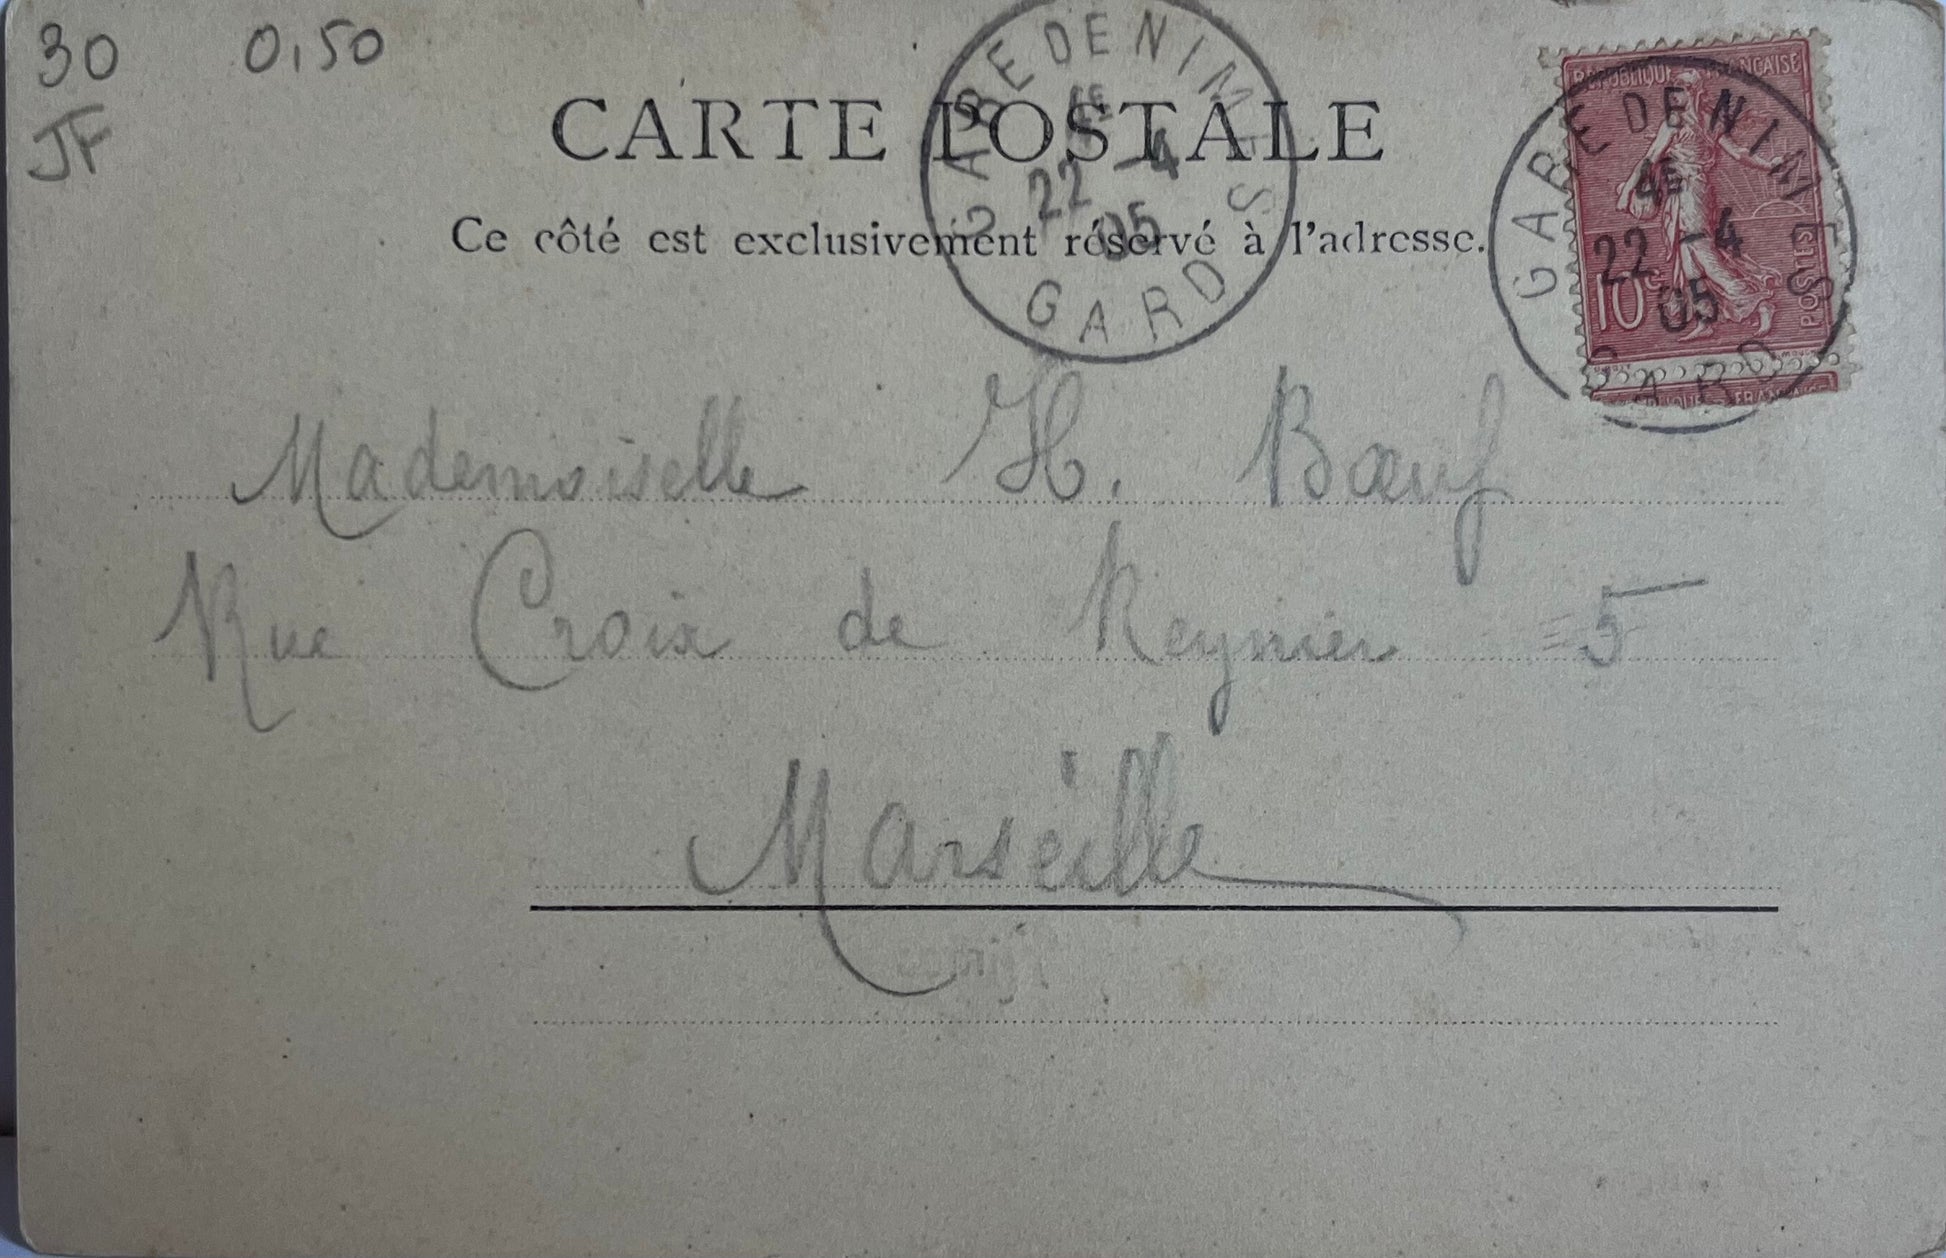 30 0,50
JF
CARTE POSTALE
Ce côté est exclusivement réservé à l'adresse.
GARE DE NIMES
4E
22 -4
05
GARD
RÉPUBLIQUE FRANÇAISE
10c
POSTES
GARE DE NIMES
4E
22 -4
05
GARD
Mademoiselle H. Bœuf
Rue Croix de Reynier = 5
Marseille